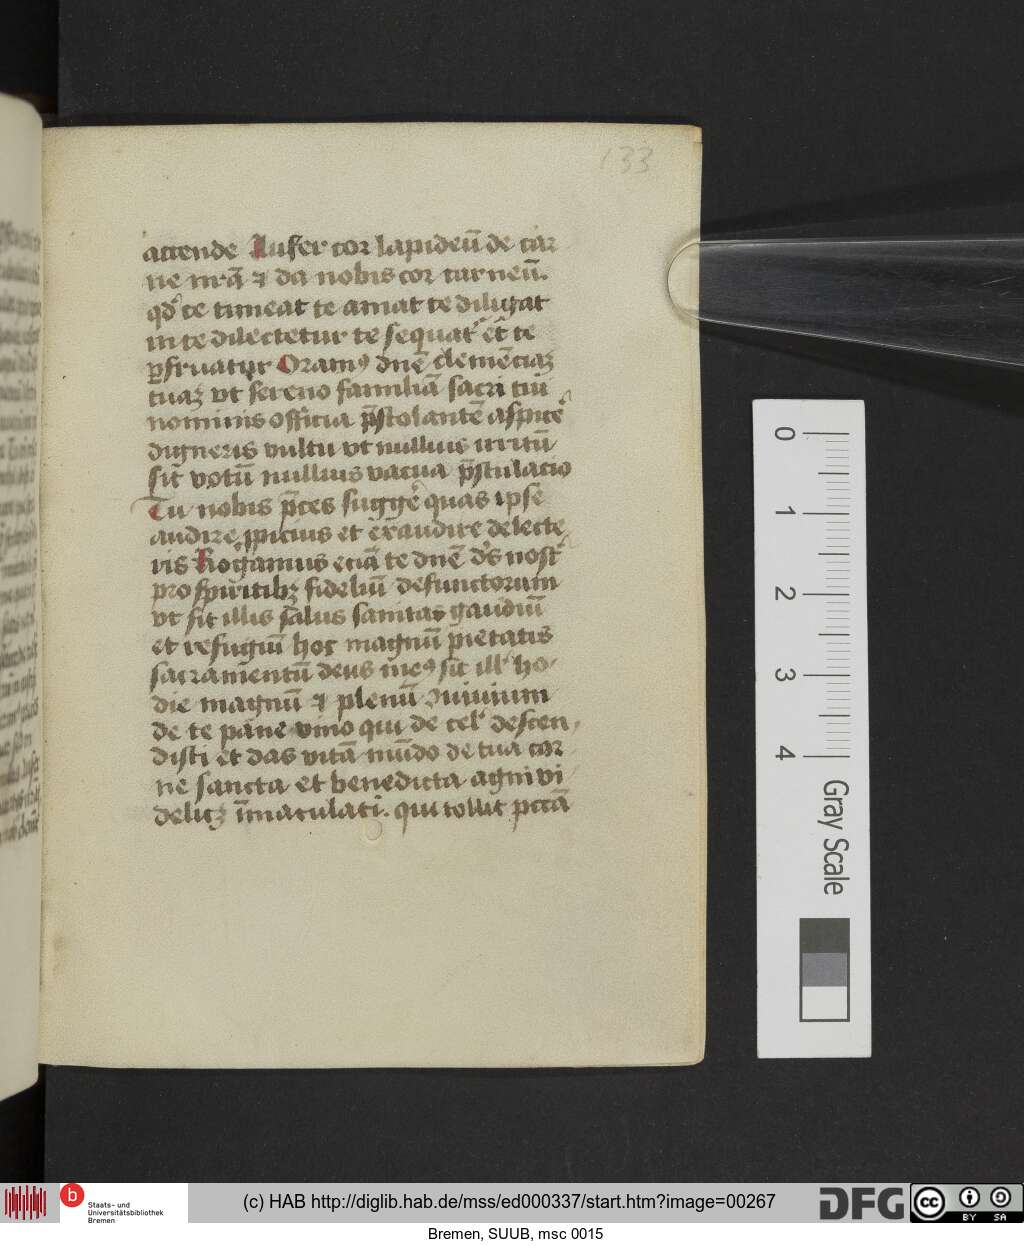 133
attende Aufer cor lapideū de car
ne nr̄a ⁊ da nobis cor carneū.
qd̓ te timeat te amat te diligat
in te dilectetur te sequat᷑ et te
ꝑfruatur Oramꝰ dn̄e clemēciaꝫ
tuaꝫ vt sereno familiā sacri tui
nominis officia p̄stolantē aspice᷑
digneris vultu vt nullius irritū
sit votū nullius vacua p̄stulatio
Tu nobis p̄ces suggere quas ipse
audire ꝓpicius et exaudire delecte
ris Rogamus eciā te dn̄e ds̄ nost᷑
pro spiritibꝫ fideliū defunctorum
vt sit illis salus sanitas gaudiū
et refugiū hoc magnū pietatis
sacramentū deus meꝰ sit ill᷑ ho
die magnū ⁊ plenū ꝯuiuium
de te pane viuo qui de cel᷑ descen
disti et das vitā mūdo de tua car
ne sancta et benedicta agni vi
delicꝫ īmaculati. qui tollit pccā
0
1
2
3
4
Gray Scale
b
Staats- und
Universitätsbibliothek
Bremen
(c) HAB http://diglib.hab.de/mss/ed000337/start.htm?image=00267
DFG
cc
BY
SA
Bremen, SUUB, msc 0015